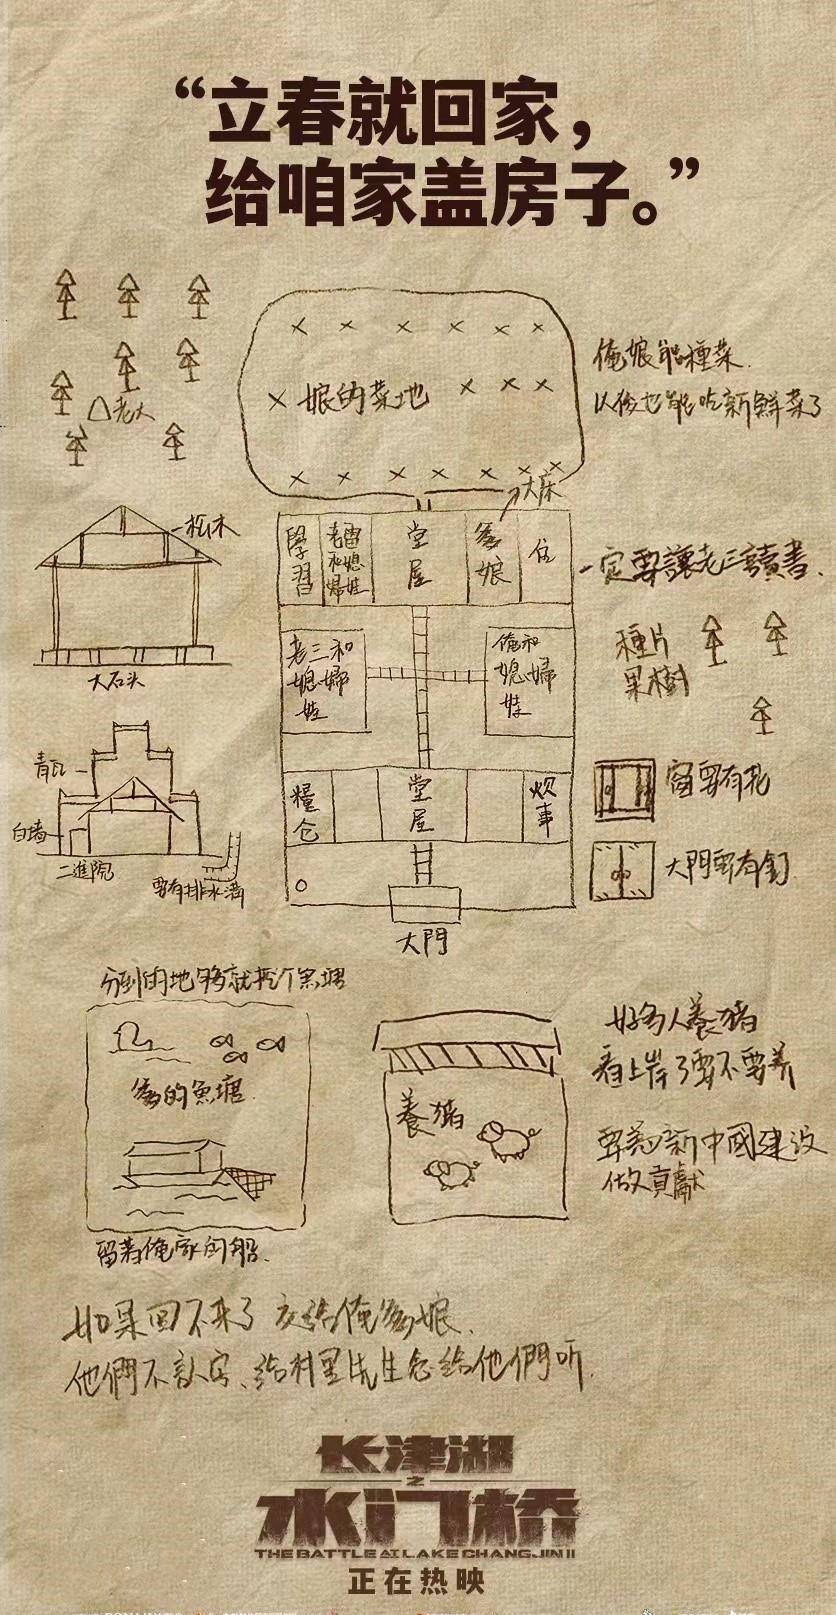 “立春就回家，
给咱家盖房子。”
娘的菜地
俺娘能種菜
以後也能吃新鮜菜了
老大
大床
松木
大石头
學習
堂屋
爹娘
住
一定要讓老三讀書
老三和媳婦娃
俺和媳婦娃
種片果樹
青瓦
白墙
二進院
要有排水溝
糧仓
堂屋
炊事
窗要有花
大門要有釘
大門
分到的地够就挖个魚塘
爹的魚塘
留着俺家的船
養猪
好多人養猪
看上岸了要不要养
要為新中國建设
做貢獻
如果回不来了 交给俺爹娘
他們不認字、给村里先生念给他們听
长津湖
之
水门桥
THE BATTLE AT LAKE CHANGJIN II
正在热映